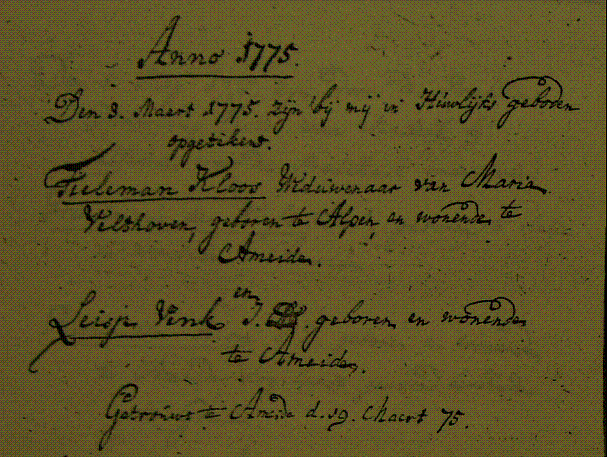 Anno 1775.
Den 3. Maert 1775. zijn bij mij in Huwlijks geboden
opgetekent.
Tieleman Kloos Weduwenaar van Maria
Velthoven, geboren te Alpen, en wonende te
Ameide.
en
Leisje Vink J. geboren en wonende
te Ameide.
Getrouwt te Ameide d. 19. Maert 75.